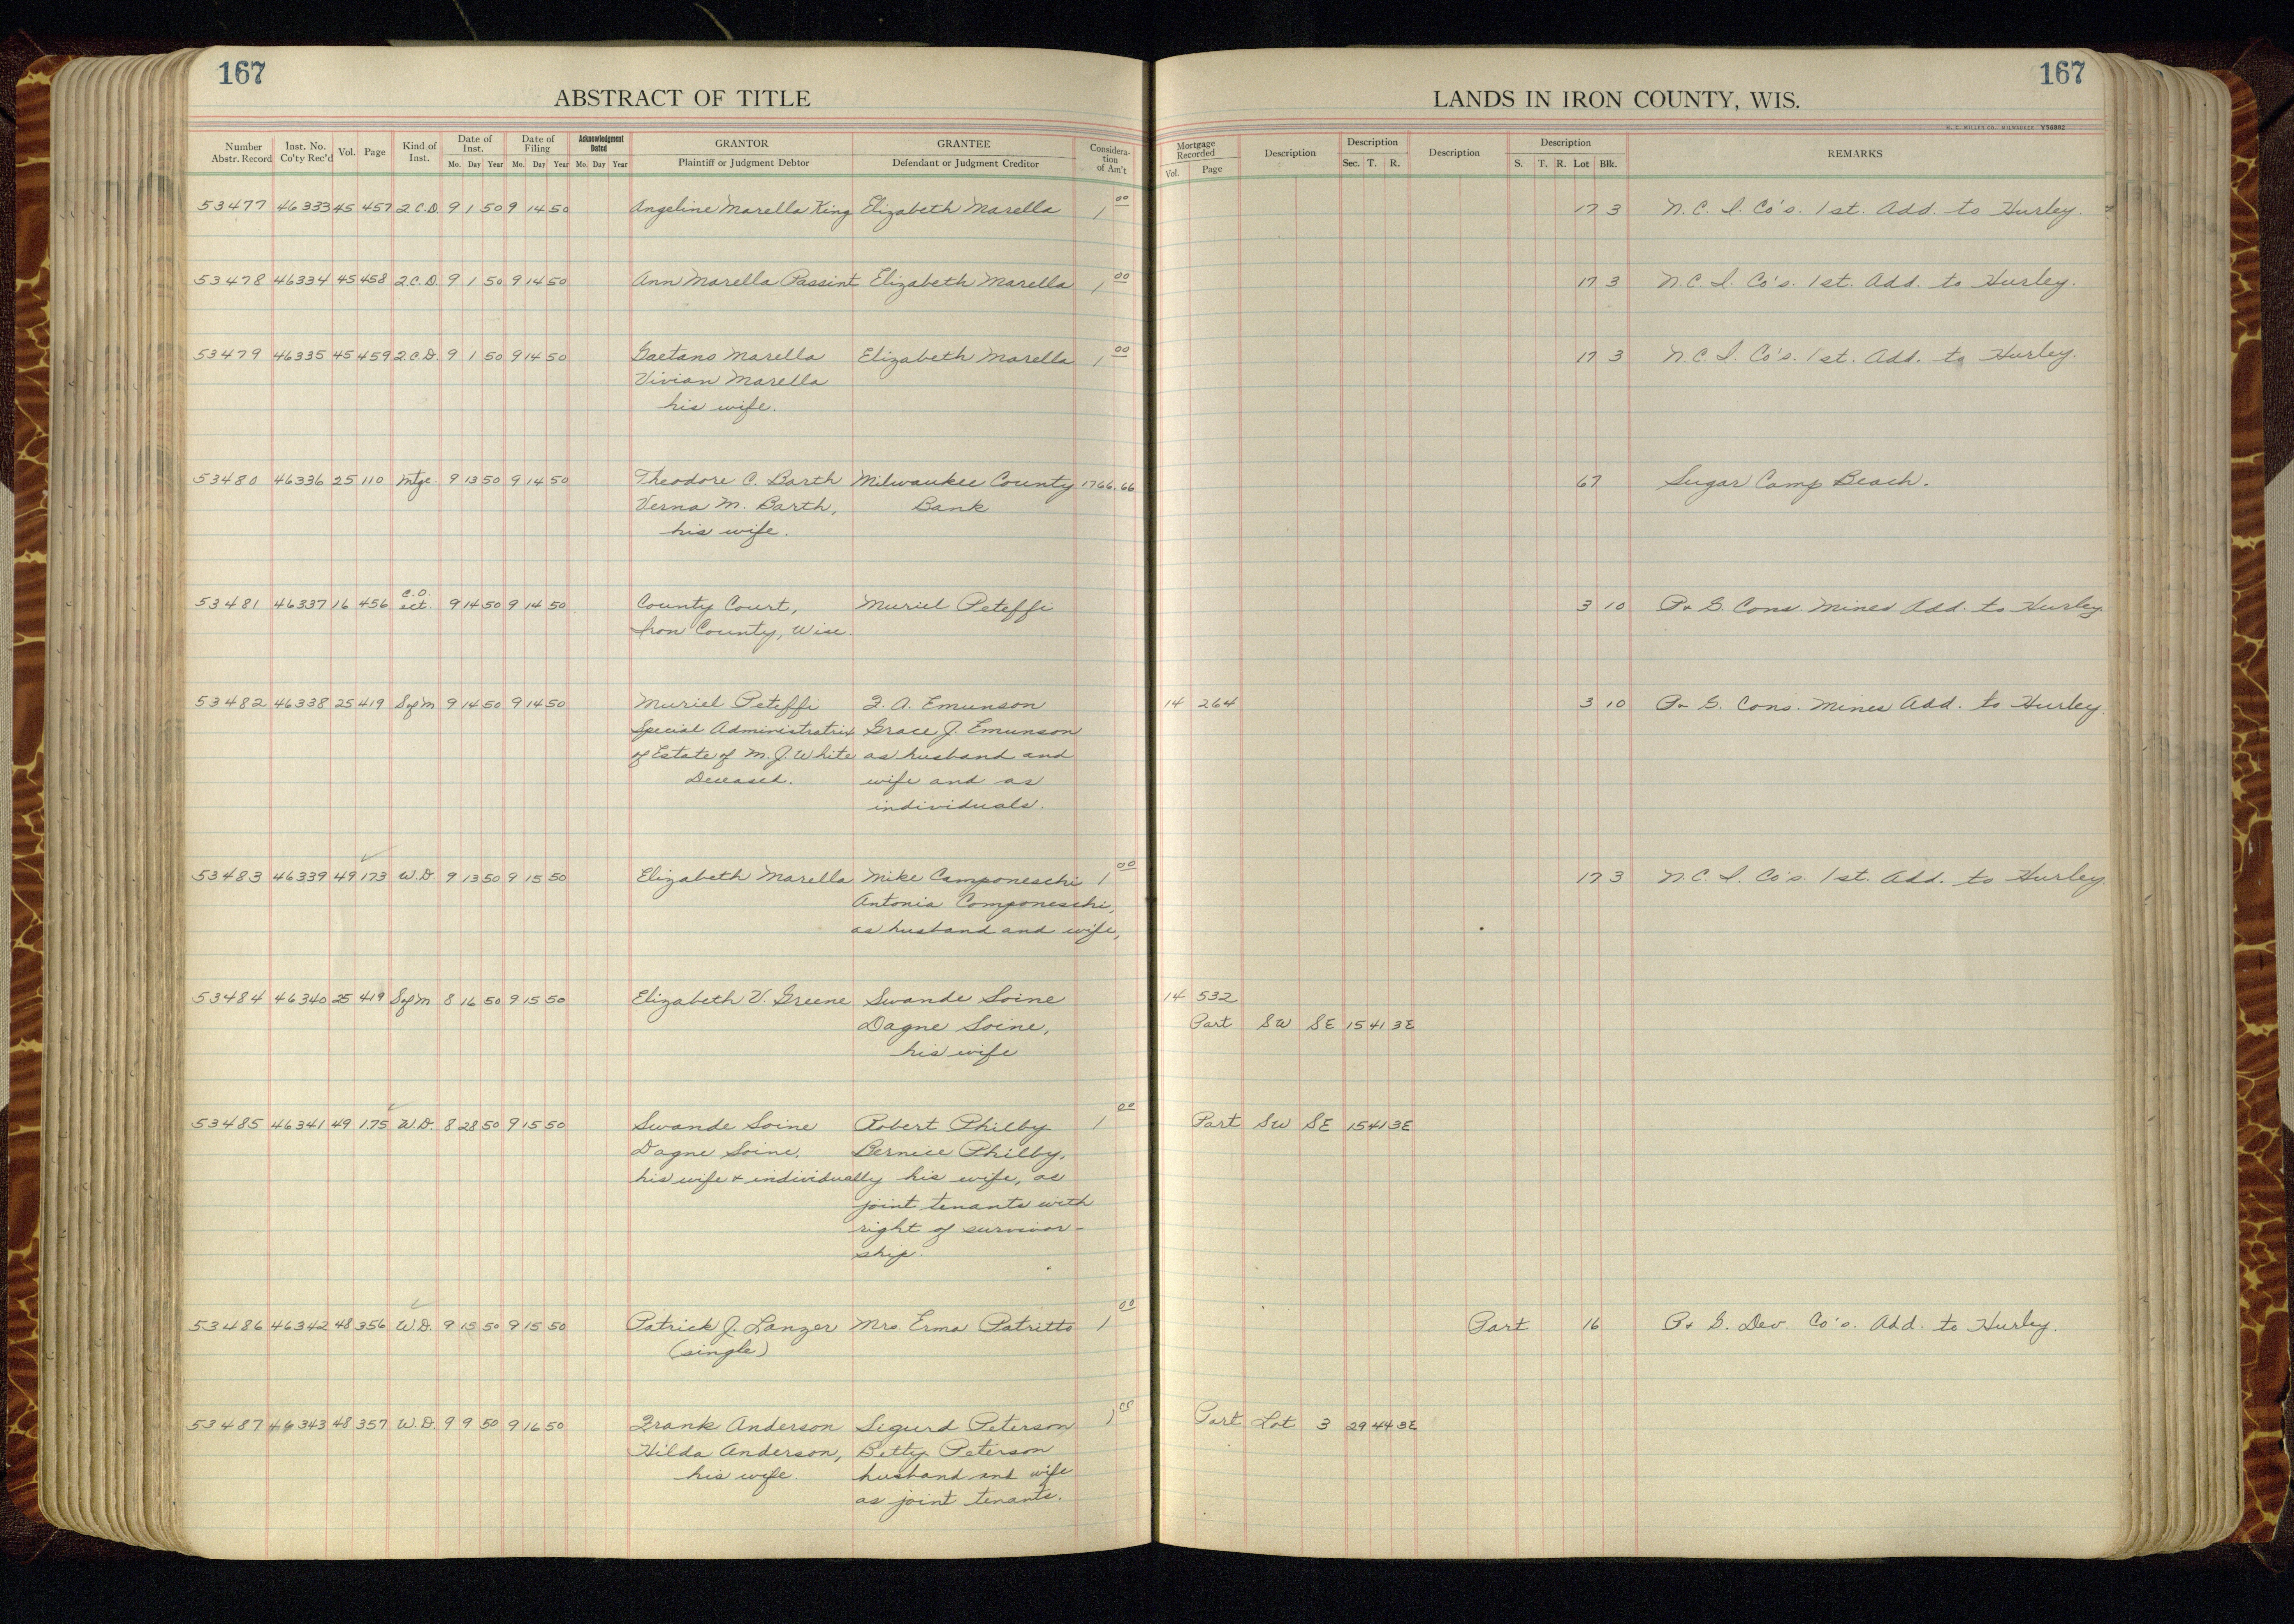 167
ABSTRACT OF TITLE
Number Abstr. Record Inst. No. Co'ty Rec'd Vol. Page Kind of Inst. Date of Inst. Mo. Day Year Date of Filing Mo. Day Year Acknowledgment Dated Mo. Day Year GRANTOR Plaintiff or Judgment Debtor GRANTEE Defendant or Judgment Creditor Considera-tion of Am't
53477 46333 45 457 Q.C.D. 9 1 50 9 14 50 Angeline Marella King Elizabeth Marella 1 00
53478 46334 45 458 Q.C.D. 9 1 50 9 14 50 Ann Marella Passint Elizabeth Marella 1 00
53479 46335 45 459 Q.C.D. 9 1 50 9 14 50 Gaetano Marella Elizabeth Marella 1 00
Vivian Marella
his wife.
53480 46336 25 110 Mtge. 9 13 50 9 14 50 Theodore C. Barth Milwaukee County 1766.66
Verna M. Barth, Bank
his wife.
C.O.
53481 46337 16 456 set. 9 14 50 9 14 50 County Court, Muriel Peteffi
Iron County, Wisc.
53482 46338 25 419 S of M 9 14 50 9 14 50 Muriel Peteffi F. A. Emunson
Special Administratrix Grace J. Emunson
of Estate of M. J. White as husband and
Deceased. wife and as
individuals.
53483 46339 49 173 W.D. 9 13 50 9 15 50 Elizabeth Marella Mike Camponeschi 1 00
Antonia Componeschi,
as husband and wife,
53484 46340 25 419 S of M 8 16 50 9 15 50 Elizabeth V. Greene Swande Soine
Dagne Soine,
his wife
53485 46341 49 175 W.D. 8 28 50 9 15 50 Swande Soine Robert Philby 1 00
Dagne Soine, Bernice Philby,
his wife & individually his wife, as
joint tenants with
right of survivor-
ship.
53486 46342 48 356 W.D. 9 15 50 9 15 50 Patrick J. Lanzer Mrs. Erma Patritto 1 00
(single)
53487 46343 48 357 W.D. 9 9 50 9 16 50 Frank Anderson Sigurd Peterson 1 00
Hilda Anderson, Betty Peterson
his wife. husband and wife
as joint tenants.
167
LANDS IN IRON COUNTY, WIS.
H. C. MILLER CO., MILWAUKEE Y56882
Mortgage Recorded Vol. Page Description Description Sec. T. R. Description Description S. T. R. Lot Blk. REMARKS
17 3 N.C.I. Co's. 1st. Add. to Hurley.
17 3 N.C.I. Co's. 1st. Add. to Hurley.
17 3 N.C.I. Co's. 1st. Add. to Hurley.
67 Sugar Camp Beach.
3 10 P & G. Cons. Mines Add. to Hurley.
14 264 3 10 P & G. Cons. Mines Add. to Hurley.
17 3 N.C.I. Co's. 1st. Add. to Hurley.
14 532
Part SW SE 15 41 3E
Part SW SE 15 41 3E
Part 16 P & G. Dev. Co's. Add. to Hurley.
Part Lot 3 29 44 3E